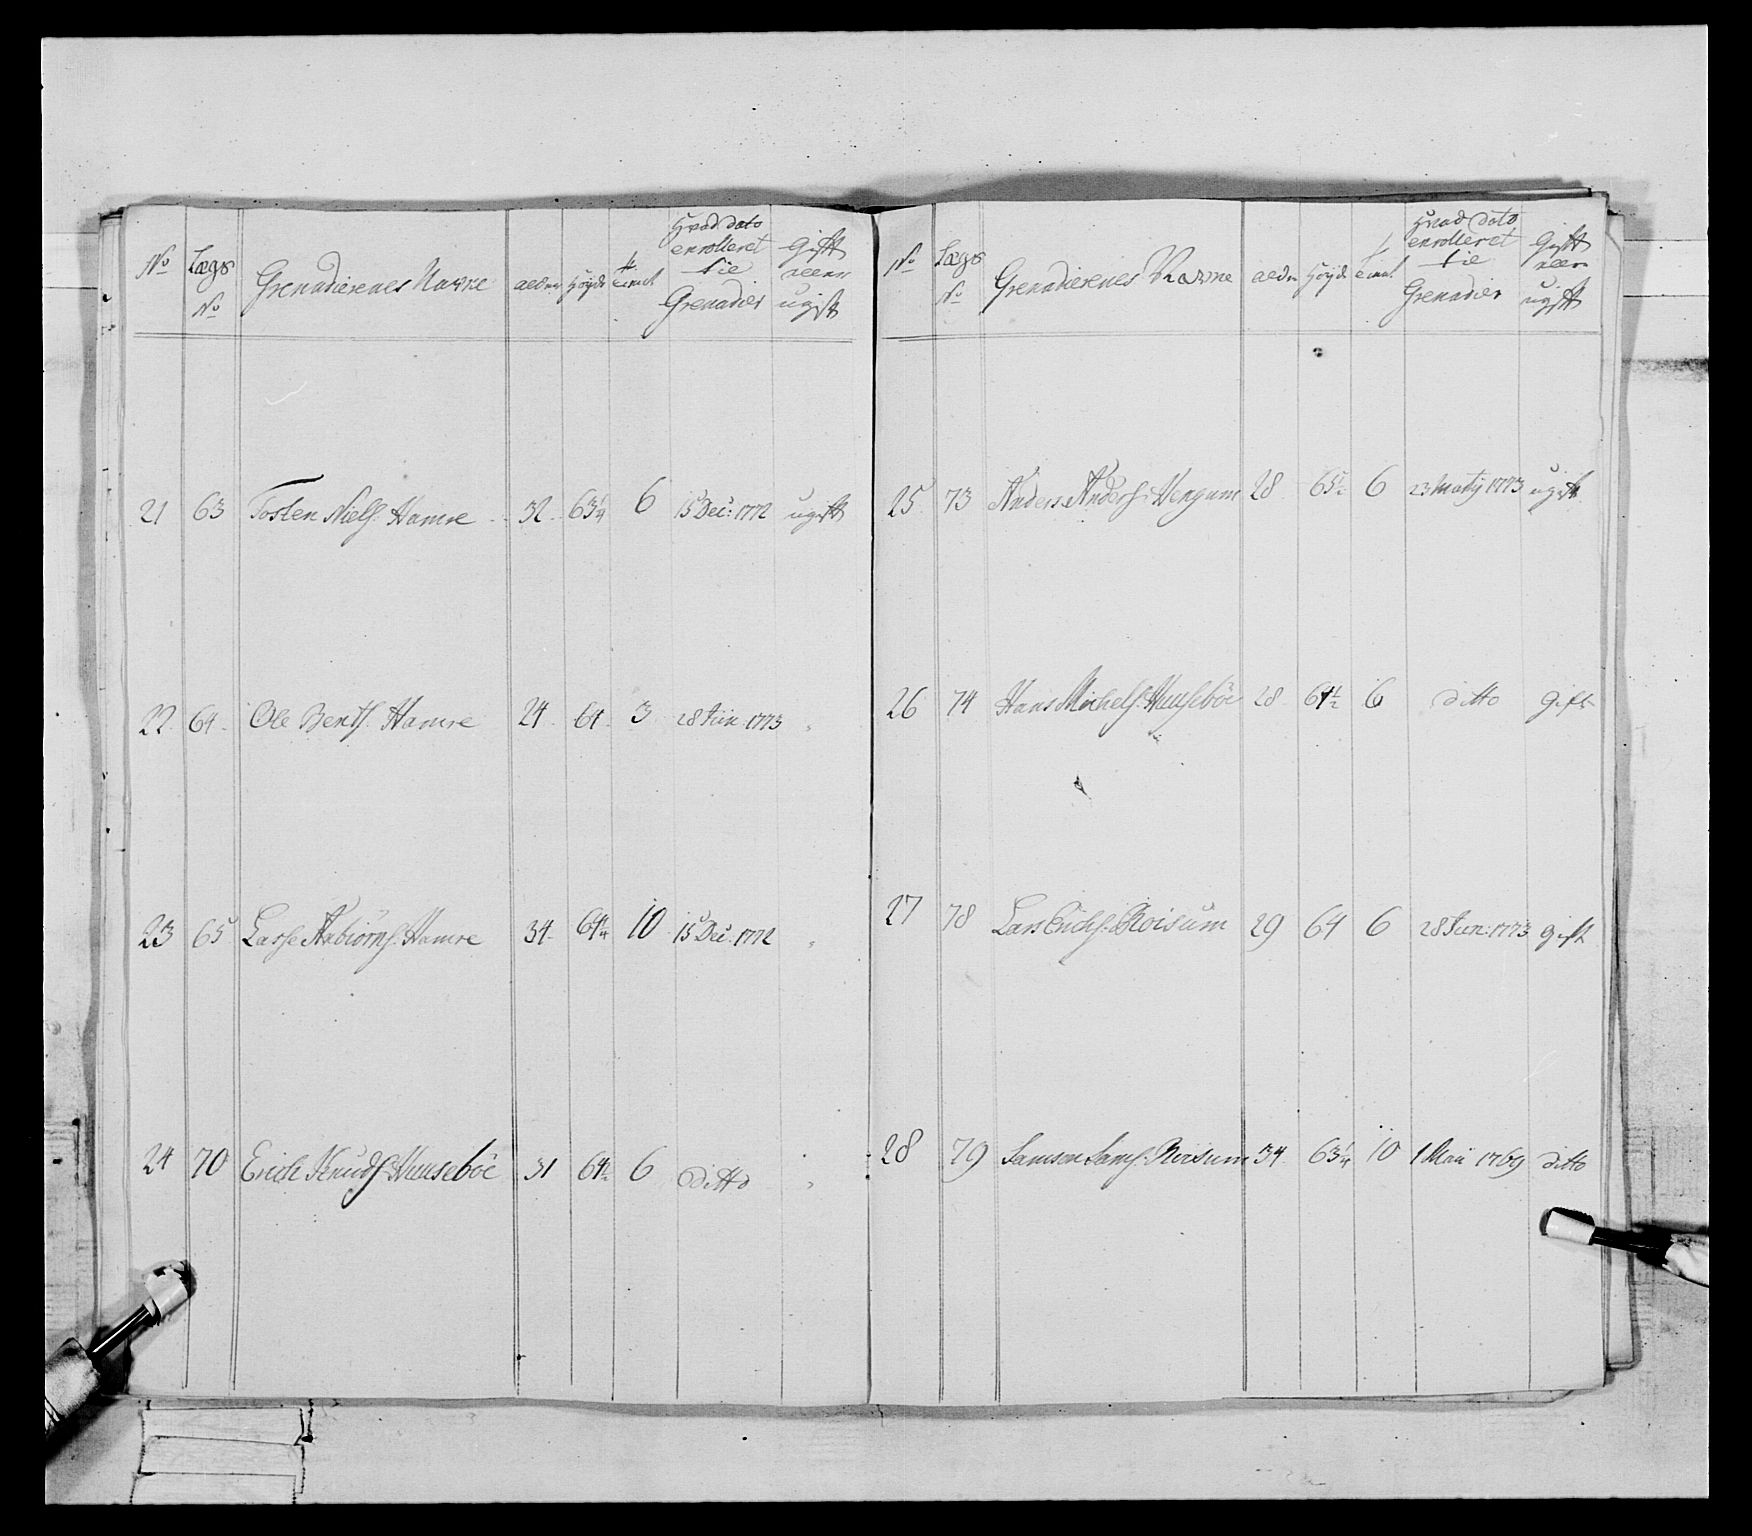 No Lægs No Grenadierenes Navne alder Høyde tient Hvad dato enrolleret til Grenadier Gift eller ugift
21 63 Tosten Niels: Hamre 32 63 1/4 6 15 Dec: 1772 ugift
22 64 Ole Bents: Hamre 24 64 3 28 Jun: 1773 "
23 65 Lasse Aabiörns: Hamre 34 64 1/4 10 15 Dec: 1772 "
24 70 Erich Knuds: Huuseböe 31 64 1/2 6 ditto "
No Lægs No Grenadierenes Navne alder Høyde tient Hvad dato enrolleret til Grenadier Gift eller ugift
25 73 Anders Anders: Vengum 28 65 1/2 6 23 Martij 1773 ugift
26 74 Hans Michels: Huuseböe 28 64 1/2 6 ditto Gift
27 78 Lars Erichs: Röisum 29 64 6 28 Jun: 1773 gift
28 79 Samson Sams: Röisum 34 63 1/4 10 1 Maii 1769 ditto